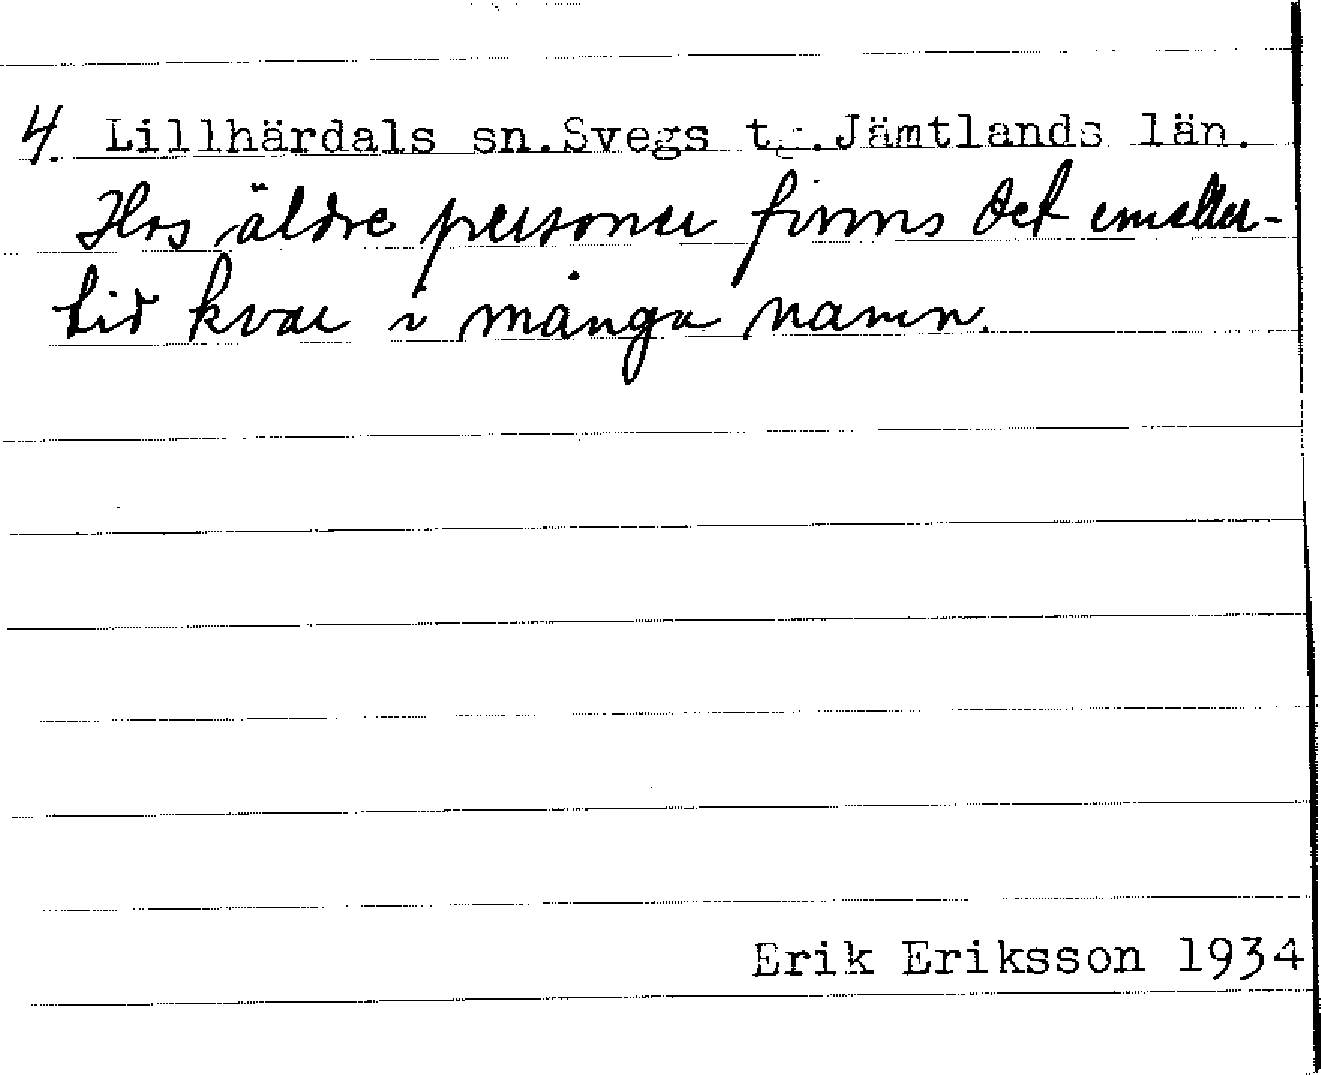 4. Lillhärdals sn. Svegs tg. Jämtlands län.
Hos äldre personer finns det emeller-
tid kvar i många namn.
Erik Eriksson 1934